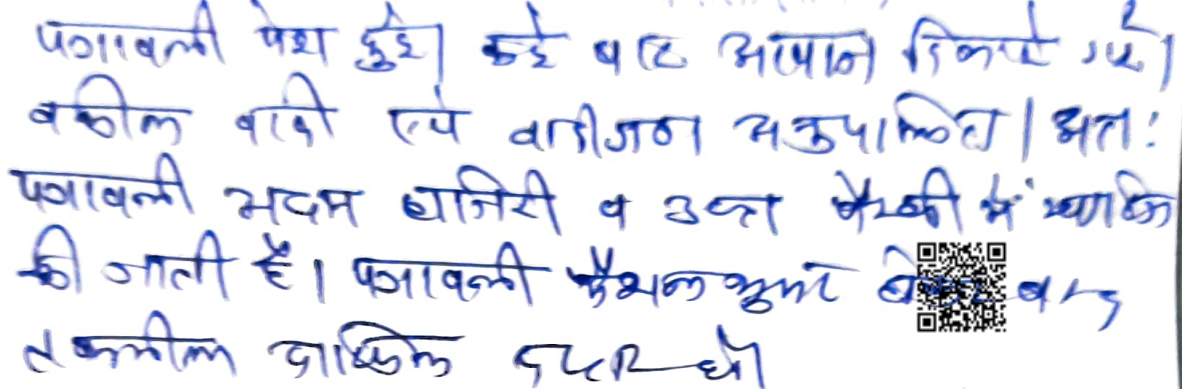 पत्रावली पेश हुई। कई बार आवाज दिलाये गये।
वकील वादी एवं वादीगण अनुपस्थित। अतः
पत्रावली अदम हाजिरी व उक्त पैरवी में खारिज
की जाती है। पत्रावली फैसल शुमार
तकमील दाखिल दफ्तर हो।